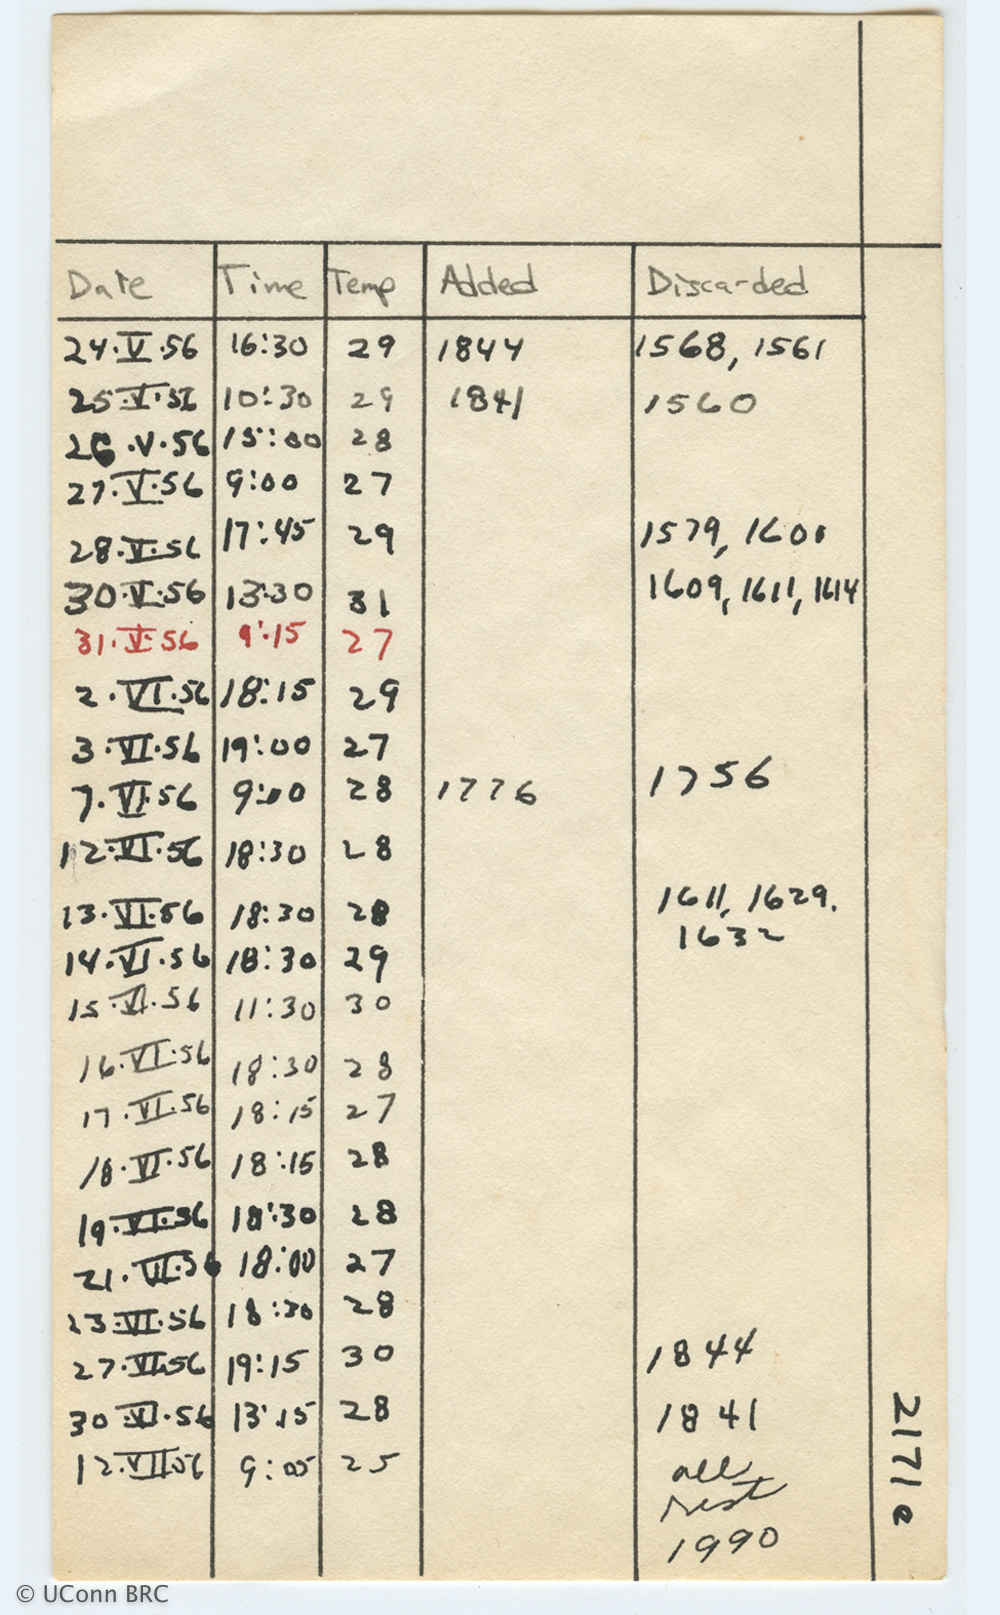 Date Time Temp Added Discarded
24·V·56 16:30 29 1844 1568, 1561
25·V·56 10:30 29 1841 1560
26·V·56 15:00 28
27·V·56 9:00 27
28·V·56 17:45 29 1579, 1600
30·V·56 13:30 31 1609, 1611, 1614
31·V·56 9:15 27
2·VI·56 18:15 29
3·VI·56 19:00 27
7·VI·56 9:00 28 1776 1756
12·VI·56 18:30 28
13·VI·56 18:30 28 1611, 1629.
1632
14·VI·56 18:30 29
15·VI·56 11:30 30
16·VI·56 18:30 28
17·VI·56 18:15 27
18·VI·56 18:15 28
19·VI·56 18:30 28
21·VI·56 18:00 27
23·VI·56 18:30 28
27·VI·56 19:15 30 1844
30·VI·56 13:15 28 1841
12·VII·56 9:05 25 all
rest
1990
2171e
© UConn BRC